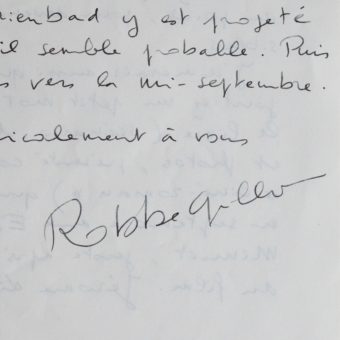 ienbad y est projeté
il semble probable. Puis
s vers la mi-septembre.
icalement à vous
Robbe Grillet